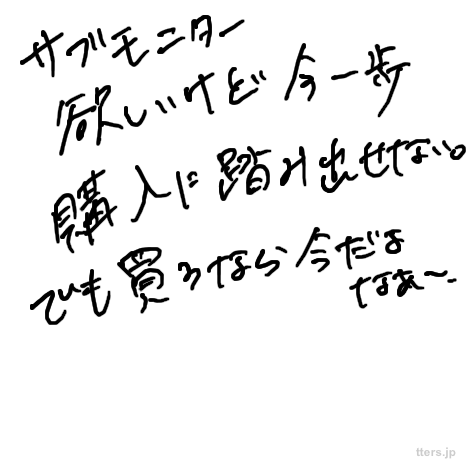 サブモニター
欲しいけど 今一歩
購入に踏み出せない。
でも買うなら今だよ
なぁ〜.
tters.jp